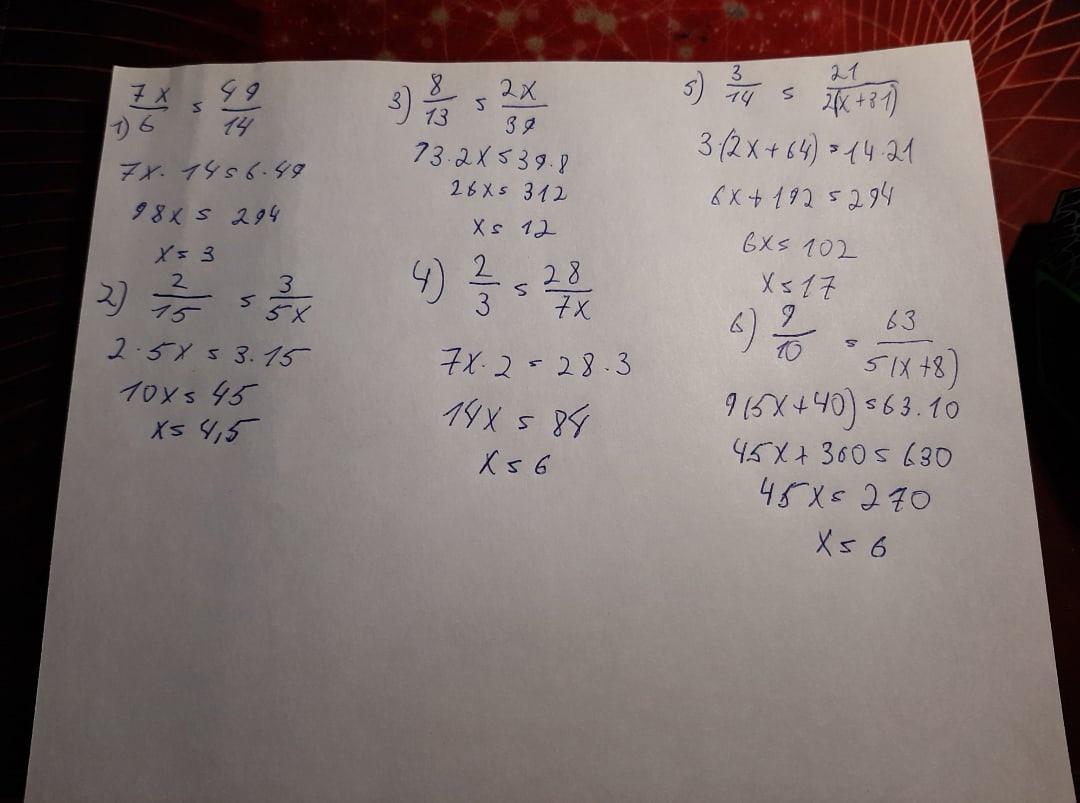 1) 7x/6 = 49/14
7x · 14 = 6 · 49
98x = 294
x = 3
2) 2/15 = 3/5x
2 · 5x = 3 · 15
10x = 45
x = 4,5
3) 8/13 = 2x/39
13 · 2x = 39 · 8
26x = 312
x = 12
4) 2/3 = 28/7x
7x · 2 = 28 · 3
14x = 84
x = 6
5) 3/14 = 21/2(x+31)
3 · (2x + 64) = 14 · 21
6x + 192 = 294
6x = 102
x = 17
6) 9/10 = 63/5(x+8)
9(5x + 40) = 63 · 10
45x + 360 = 630
45x = 270
x = 6